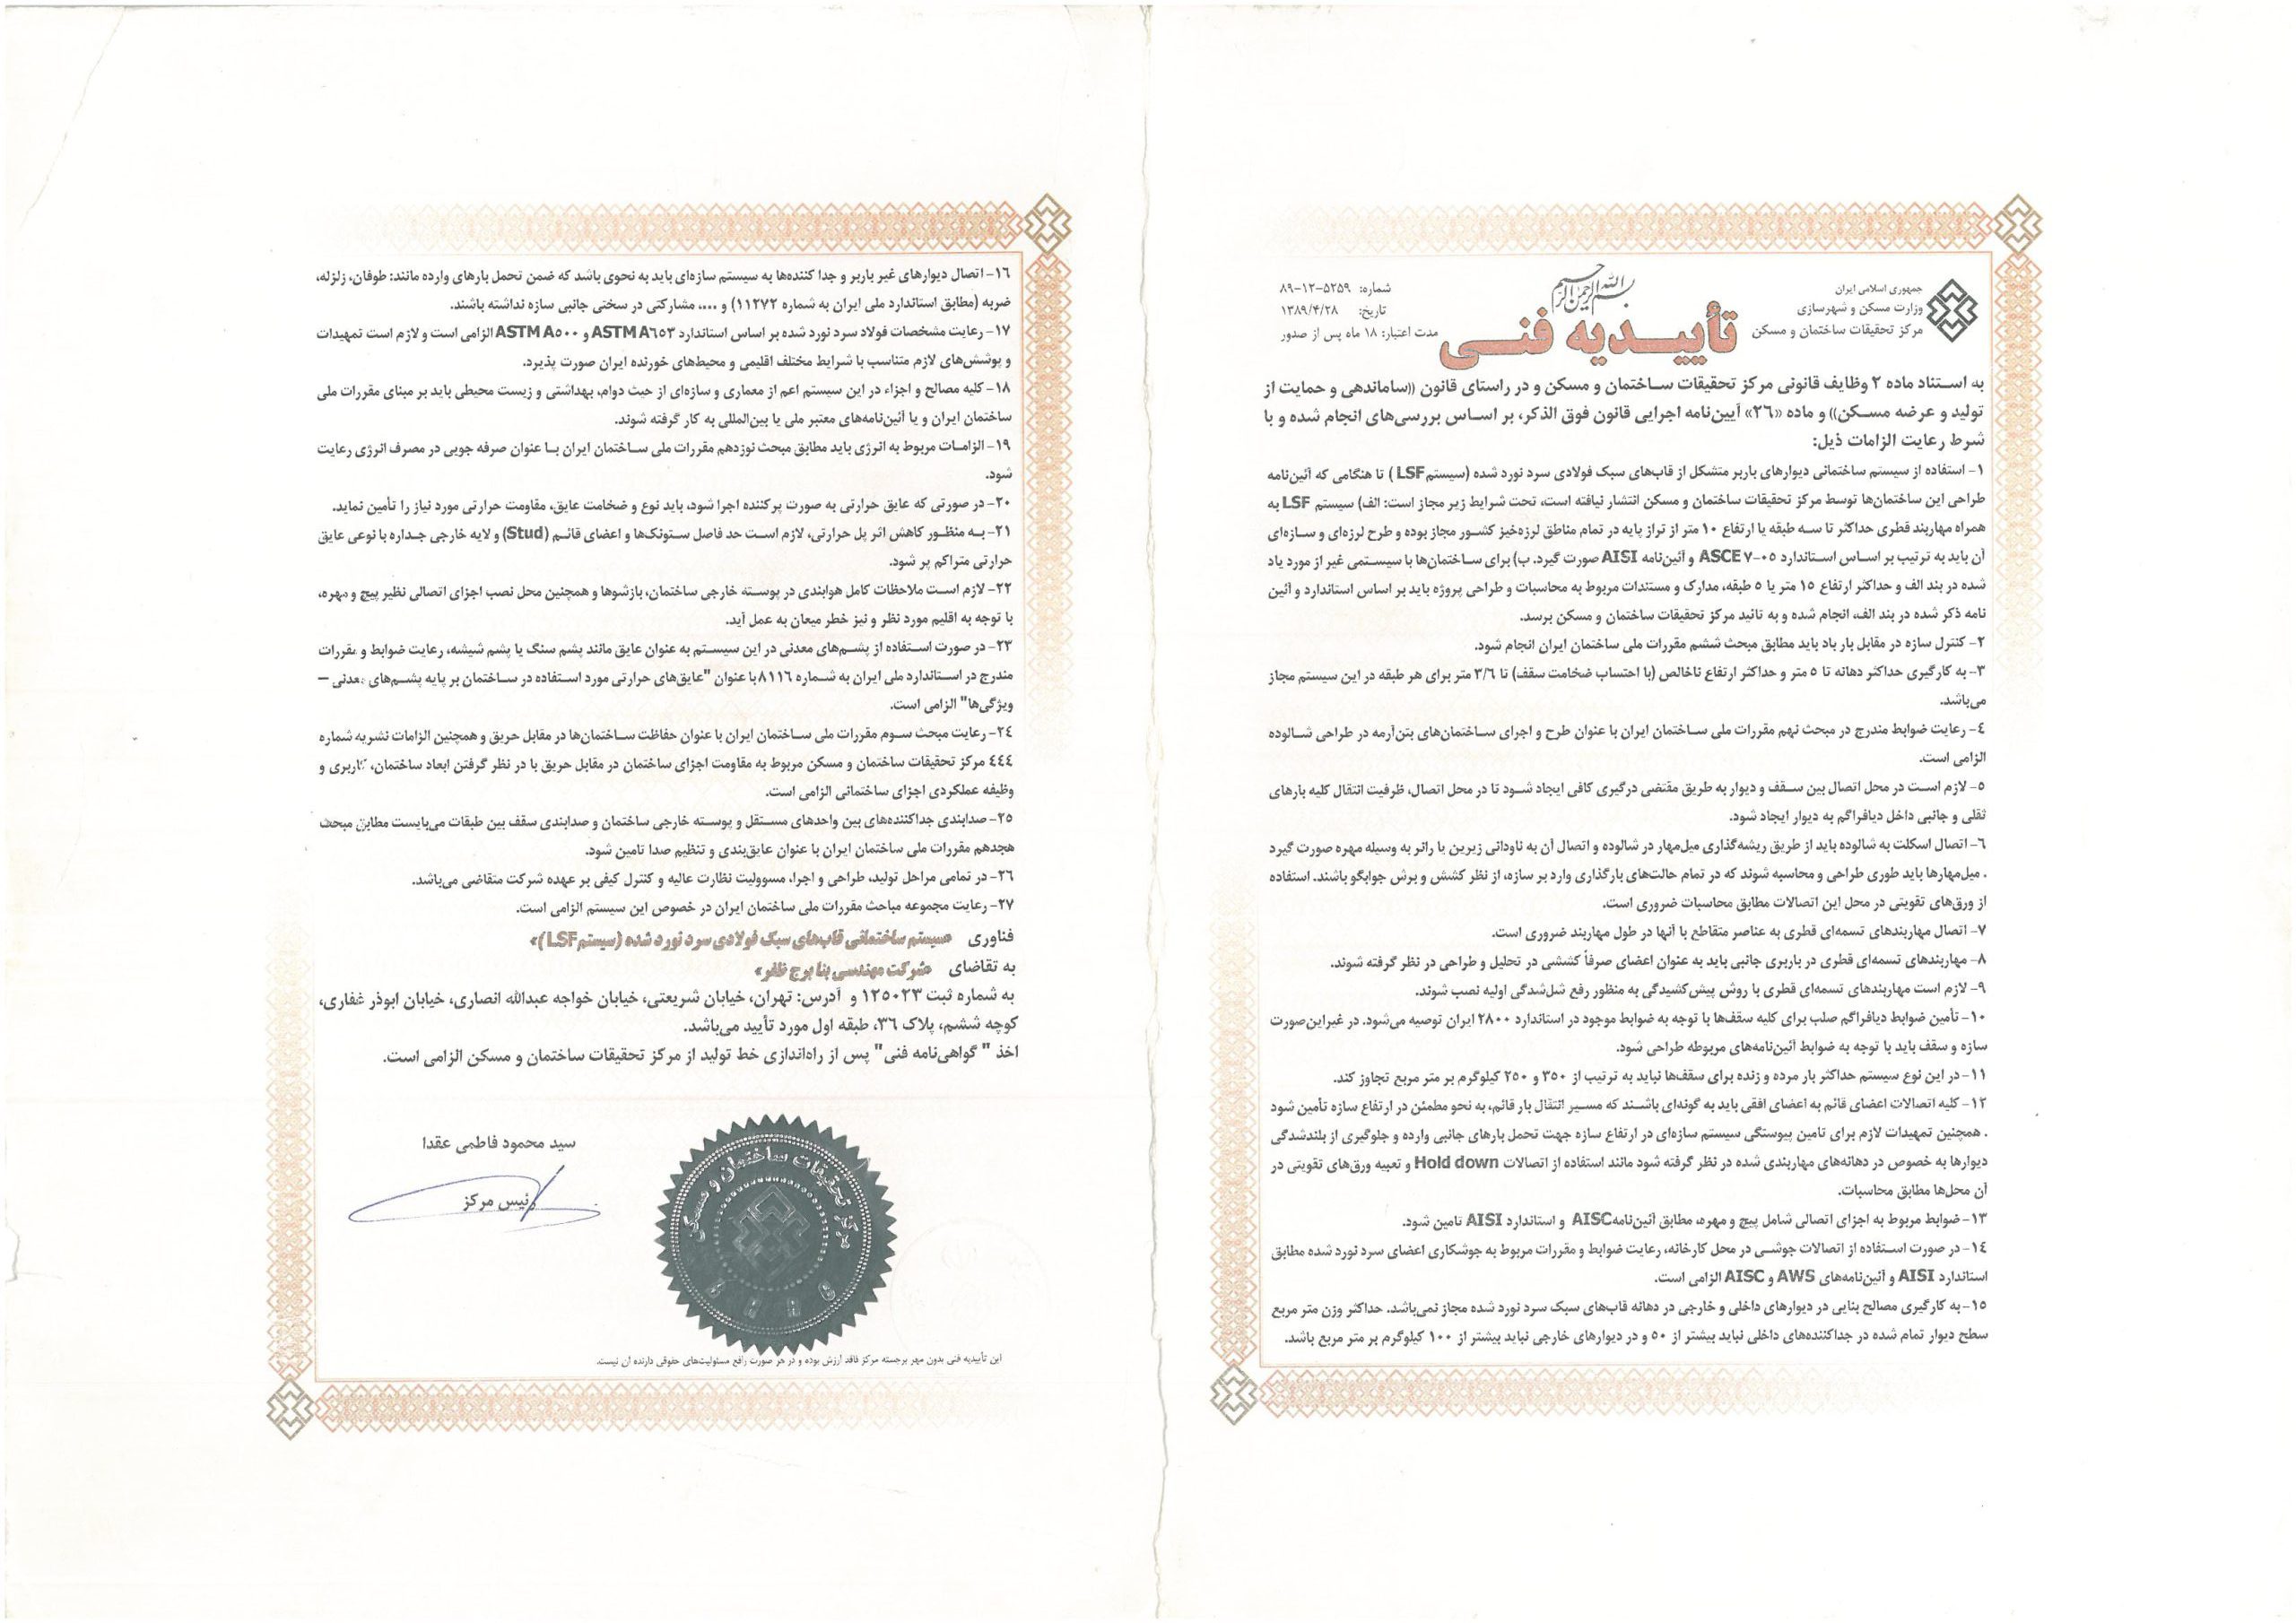 جمهوری اسلامی ایران
وزارت مسکن و شهرسازی
مرکز تحقیقات ساختمان و مسکن
بسم الله الرحمن الرحیم
تأییدیه فنی
شماره: ۸۹-۱۲-۵۲۵۹
تاریخ: ۱۳۸۹/۴/۲۸
مدت اعتبار: ۱۸ ماه پس از صدور
به استناد ماده ۲ وظایف قانونی مرکز تحقیقات ساختمان و مسکن و در راستای قانون «ساماندهی و حمایت از
تولید و عرضه مسکن» و ماده «۲۶» آیین‌نامه اجرایی قانون فوق الذکر، بر اساس بررسی‌های انجام شده و با
شرط رعایت الزامات ذیل:
۱- استفاده از سیستم ساختمانی دیوارهای باربر متشکل از قاب‌های سبک فولادی سرد نورد شده (سیستم LSF) تا هنگامی که آئین‌نامه
طراحی این ساختمان‌ها توسط مرکز تحقیقات ساختمان و مسکن انتشار نیافته است، تحت شرایط زیر مجاز است: الف) سیستم LSF به
همراه مهاربند قطری حداکثر تا سه طبقه یا ارتفاع ۱۰ متر از تراز پایه در تمام مناطق لرزه‌خیز کشور مجاز بوده و طرح لرزه‌ای و سازه‌ای
آن باید به ترتیب بر اساس استاندارد ASCE ۷-۰۵ و آئین‌نامه AISI صورت گیرد. ب) برای ساختمان‌ها با سیستمی غیر از مورد یاد
شده در بند الف و حداکثر ارتفاع ۱۵ متر یا ۵ طبقه، مدارک و مستندات مربوط به محاسبات و طراحی پروژه باید بر اساس استاندارد و آئین
نامه ذکر شده در بند الف، انجام شده و به تائید مرکز تحقیقات ساختمان و مسکن برسد.
۲- کنترل سازه در مقابل بار باد باید مطابق مبحث ششم مقررات ملی ساختمان ایران انجام شود.
۳- به کارگیری حداکثر دهانه تا ۵ متر و حداکثر ارتفاع ناخالص (با احتساب ضخامت سقف) تا ۳/۶ متر برای هر طبقه در این سیستم مجاز
می‌باشد.
۴- رعایت ضوابط مندرج در مبحث نهم مقررات ملی ساختمان ایران با عنوان طرح و اجرای ساختمان‌های بتن‌آرمه در طراحی شالوده
الزامی است.
۵- لازم است در محل اتصال بین سقف و دیوار به طریق مقتضی درگیری کافی ایجاد شود تا در محل اتصال، ظرفیت انتقال کلیه بارهای
ثقلی و جانبی داخل دیافراگم به دیوار ایجاد شود.
۶- اتصال اسکلت به شالوده باید از طریق ریشه‌گذاری میل‌مهار در شالوده و اتصال آن به ناودانی زیرین یا رانر به وسیله مهره صورت گیرد
. میل‌مهارها باید طوری طراحی و محاسبه شوند که در تمام حالت‌های بارگذاری وارد بر سازه، از نظر کشش و برش جوابگو باشند. استفاده
از ورق‌های تقویتی در محل این اتصالات مطابق محاسبات ضروری است.
۷- اتصال مهاربندهای تسمه‌ای قطری به عناصر متقاطع با آنها در طول مهاربند ضروری است.
۸- مهاربندهای تسمه‌ای قطری در باربری جانبی باید به عنوان اعضای صرفاً کششی در تحلیل و طراحی در نظر گرفته شوند.
۹- لازم است مهاربندهای تسمه‌ای قطری با روش پیش‌کشیدگی به منظور رفع شل‌شدگی اولیه نصب شوند.
۱۰- تأمین ضوابط دیافراگم صلب برای کلیه سقف‌ها با توجه به ضوابط موجود در استاندارد ۲۸۰۰ ایران توصیه می‌شود. در غیراین‌صورت
سازه و سقف باید با توجه به ضوابط آئین‌نامه‌های مربوطه طراحی شود.
۱۱- در این نوع سیستم حداکثر بار مرده و زنده برای سقف‌ها نباید به ترتیب از ۳۵۰ و ۲۵۰ کیلوگرم بر متر مربع تجاوز کند.
۱۲- کلیه اتصالات اعضای قائم به اعضای افقی باید به گونه‌ای باشند که مسیر انتقال بار قائم، به نحو مطمئن در ارتفاع سازه تأمین شود
. همچنین تمهیدات لازم برای تامین پیوستگی سیستم سازه‌ای در ارتفاع سازه جهت تحمل بارهای جانبی وارده و جلوگیری از بلندشدگی
دیوارها به خصوص در دهانه‌های مهاربندی شده در نظر گرفته شود مانند استفاده از اتصالات Hold down و تعبیه ورق‌های تقویتی در
آن محل‌ها مطابق محاسبات.
۱۳- ضوابط مربوط به اجزای اتصالی شامل پیچ و مهره، مطابق آئین‌نامه AISC و استاندارد AISI تامین شود.
۱۴- در صورت استفاده از اتصالات جوشی در محل کارخانه، رعایت ضوابط و مقررات مربوط به جوشکاری اعضای سرد نورد شده مطابق
استاندارد AISI و آئین‌نامه‌های AWS و AISC الزامی است.
۱۵- به کارگیری مصالح بنایی در دیوارهای داخلی و خارجی در دهانه قاب‌های سبک سرد نورد شده مجاز نمی‌باشد. حداکثر وزن متر مربع
سطح دیوار تمام شده در جداکننده‌های داخلی نباید بیشتر از ۵۰ و در دیوارهای خارجی نباید بیشتر از ۱۰۰ کیلوگرم بر متر مربع باشد.
۱۶- اتصال دیوارهای غیر باربر و جدا کننده‌ها به سیستم سازه‌ای باید به نحوی باشد که ضمن تحمل بارهای وارده مانند: طوفان، زلزله،
ضربه (مطابق استاندارد ملی ایران به شماره ۱۱۲۷۲) و ....، مشارکتی در سختی جانبی سازه نداشته باشند.
۱۷- رعایت مشخصات فولاد سرد نورد شده بر اساس استاندارد ASTM A۶۵۳ و ASTM A۵۰۰ الزامی است و لازم است تمهیدات
و پوشش‌های لازم متناسب با شرایط مختلف اقلیمی و محیط‌های خورنده ایران صورت پذیرد.
۱۸- کلیه مصالح و اجزاء در این سیستم اعم از معماری و سازه‌ای از حیث دوام، بهداشتی و زیست محیطی باید بر مبنای مقررات ملی
ساختمان ایران و یا آئین‌نامه‌های معتبر ملی یا بین‌المللی به کار گرفته شوند.
۱۹- الزامات مربوط به انرژی باید مطابق مبحث نوزدهم مقررات ملی ساختمان ایران با عنوان صرفه جویی در مصرف انرژی رعایت
شود.
۲۰- در صورتی که عایق حرارتی به صورت پرکننده اجرا شود، باید نوع و ضخامت عایق، مقاومت حرارتی مورد نیاز را تأمین نماید.
۲۱- به منظور کاهش اثر پل حرارتی، لازم است حد فاصل ستونک‌ها و اعضای قائم (Stud) و لایه خارجی جداره با نوعی عایق
حرارتی متراکم پر شود.
۲۲- لازم است ملاحظات کامل هوابندی در پوسته خارجی ساختمان، بازشوها و همچنین محل نصب اجزای اتصالی نظیر پیچ و مهره،
با توجه به اقلیم مورد نظر و نیز خطر میعان به عمل آید.
۲۳- در صورت استفاده از پشم‌های معدنی در این سیستم به عنوان عایق مانند پشم سنگ یا پشم شیشه، رعایت ضوابط و مقررات
مندرج در استاندارد ملی ایران به شماره ۸۱۱۶ با عنوان "عایق‌های حرارتی مورد استفاده در ساختمان بر پایه پشم‌های معدنی –
ویژگی‌ها" الزامی است.
۲۴- رعایت مبحث سوم مقررات ملی ساختمان ایران با عنوان حفاظت ساختمان‌ها در مقابل حریق و همچنین الزامات نشریه شماره
۴۴۴ مرکز تحقیقات ساختمان و مسکن مربوط به مقاومت اجزای ساختمان در مقابل حریق با در نظر گرفتن ابعاد ساختمان، کاربری و
وظیفه عملکردی اجزای ساختمانی الزامی است.
۲۵- صدابندی جداکننده‌های بین واحدهای مستقل و پوسته خارجی ساختمان و صدابندی سقف بین طبقات می‌بایست مطابق مبحث
هجدهم مقررات ملی ساختمان ایران با عنوان عایق‌بندی و تنظیم صدا تامین شود.
۲۶- در تمامی مراحل تولید، طراحی و اجرا، مسوولیت نظارت عالیه و کنترل کیفی بر عهده شرکت متقاضی می‌باشد.
۲۷- رعایت مجموعه مباحث مقررات ملی ساختمان ایران در خصوص این سیستم الزامی است.
فناوری «سیستم ساختمانی قاب‌های سبک فولادی سرد نورد شده (سیستم LSF)»
به تقاضای «شرکت مهندسی بنا برج ظفر»
به شماره ثبت ۱۲۵۰۲۳ و آدرس: تهران، خیابان شریعتی، خیابان خواجه عبدالله انصاری، خیابان ابوذر غفاری،
کوچه ششم، پلاک ۳۶، طبقه اول مورد تأیید می‌باشد.
اخذ " گواهی‌نامه فنی" پس از راه‌اندازی خط تولید از مرکز تحقیقات ساختمان و مسکن الزامی است.
سید محمود فاطمی عقدا
رئیس مرکز
مرکز تحقیقات ساختمان و مسکن
B H R C
این تأییدیه فنی بدون مهر برجسته مرکز فاقد ارزش بوده و در هر صورت رافع مسئولیت‌های حقوقی دارنده آن نیست.